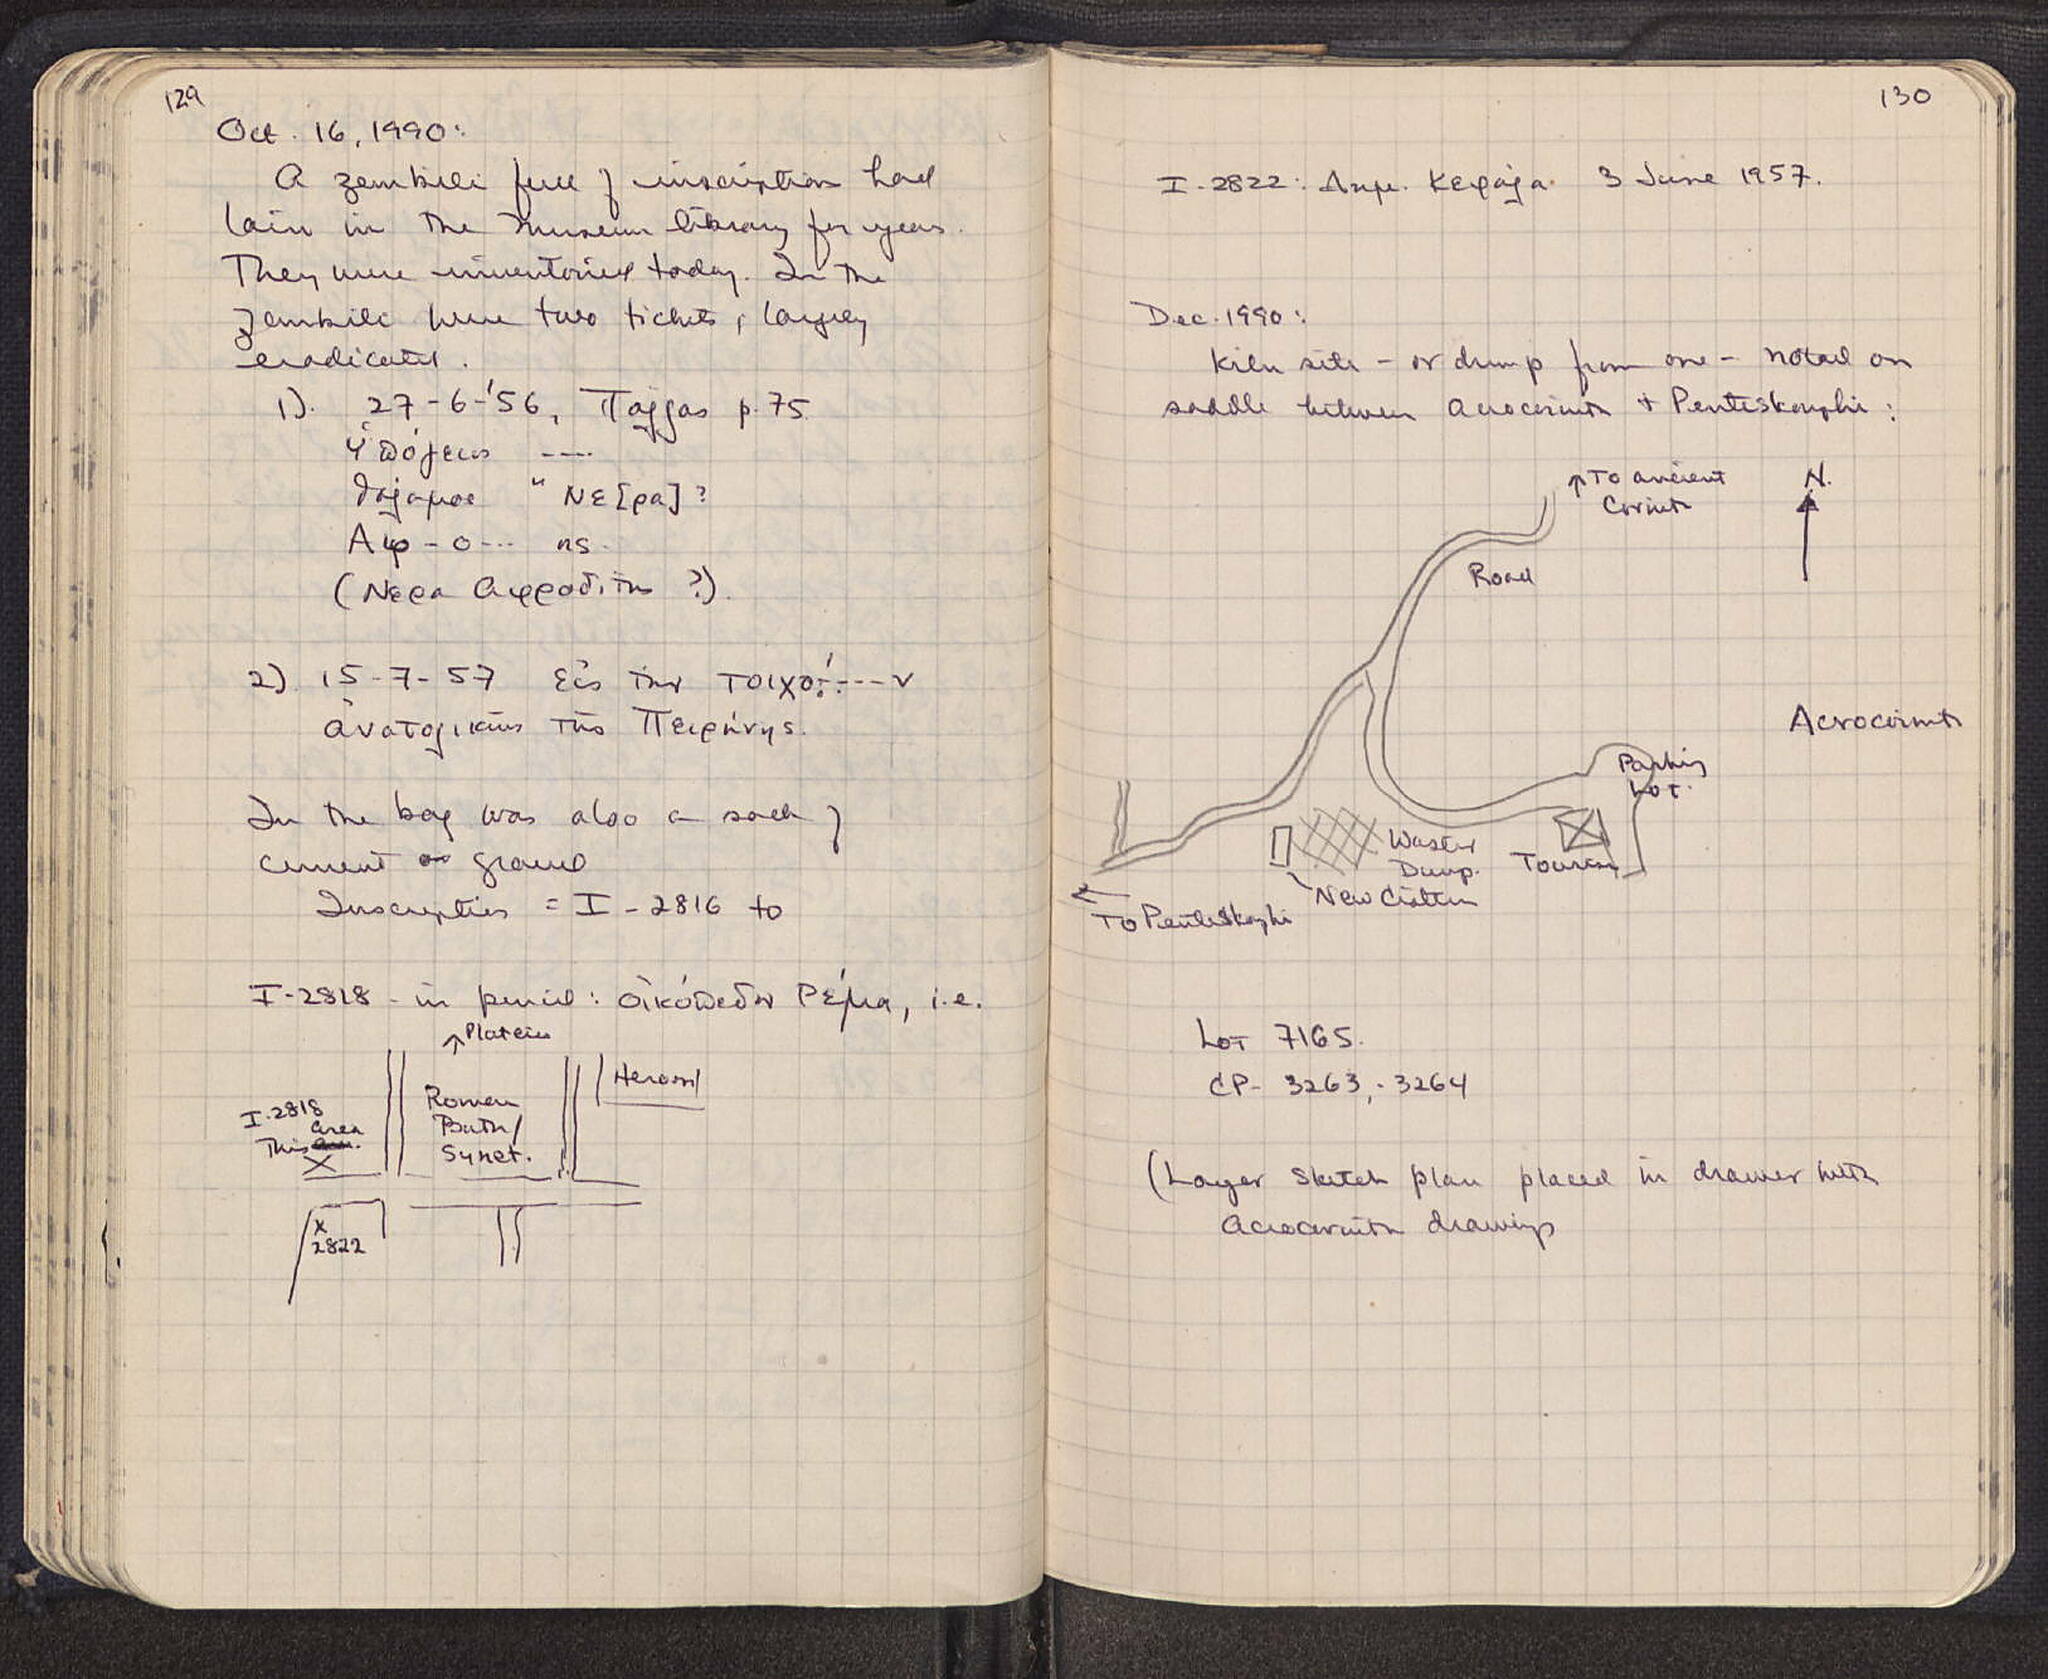 129
Oct. 16, 1990:
A zembili full of inscriptions had
lain in the museum library for years.
They were inventoried today. In the
zembili were two tickets, largely
eradicated.
1). 27-6-'56, Πάλλας p. 75
Ὑπόγειος ----
θάλαμος " Νε[ρα]?
Αφ-ο--- ης.
(Νερα Αφροδίτης ?).
2) 15-7-57 Εἰς τὴν τοιχο----ν
ἀνατολικῶς τῆς Πειρήνης.
In the bag was also a sack of
cement or ground
Inscriptions = I-2816 to
I-2818 - in pencil: οἰκόπεδον Ρέμα, i.e.
↑ Plateia
I-2818
area
This
X
Roman
Bath/
Synet.
Heroon
x
2822
130
I-2822: Δημ. Κεφάλα. 3 June 1957.
Dec. 1990:
Kiln site - or dump from one - noted on
saddle between Acrocorinth + Penteskouphi:
↑ To ancient
Corinth
N.
Road
Acrocorinth
Parking
Lot.
Waster
Dump.
Tourism
New Cistern
← To Penteskouphi
Lot 7165.
CP- 3263, -3264
(Larger sketch plan placed in drawer with
Acrocorinth drawings